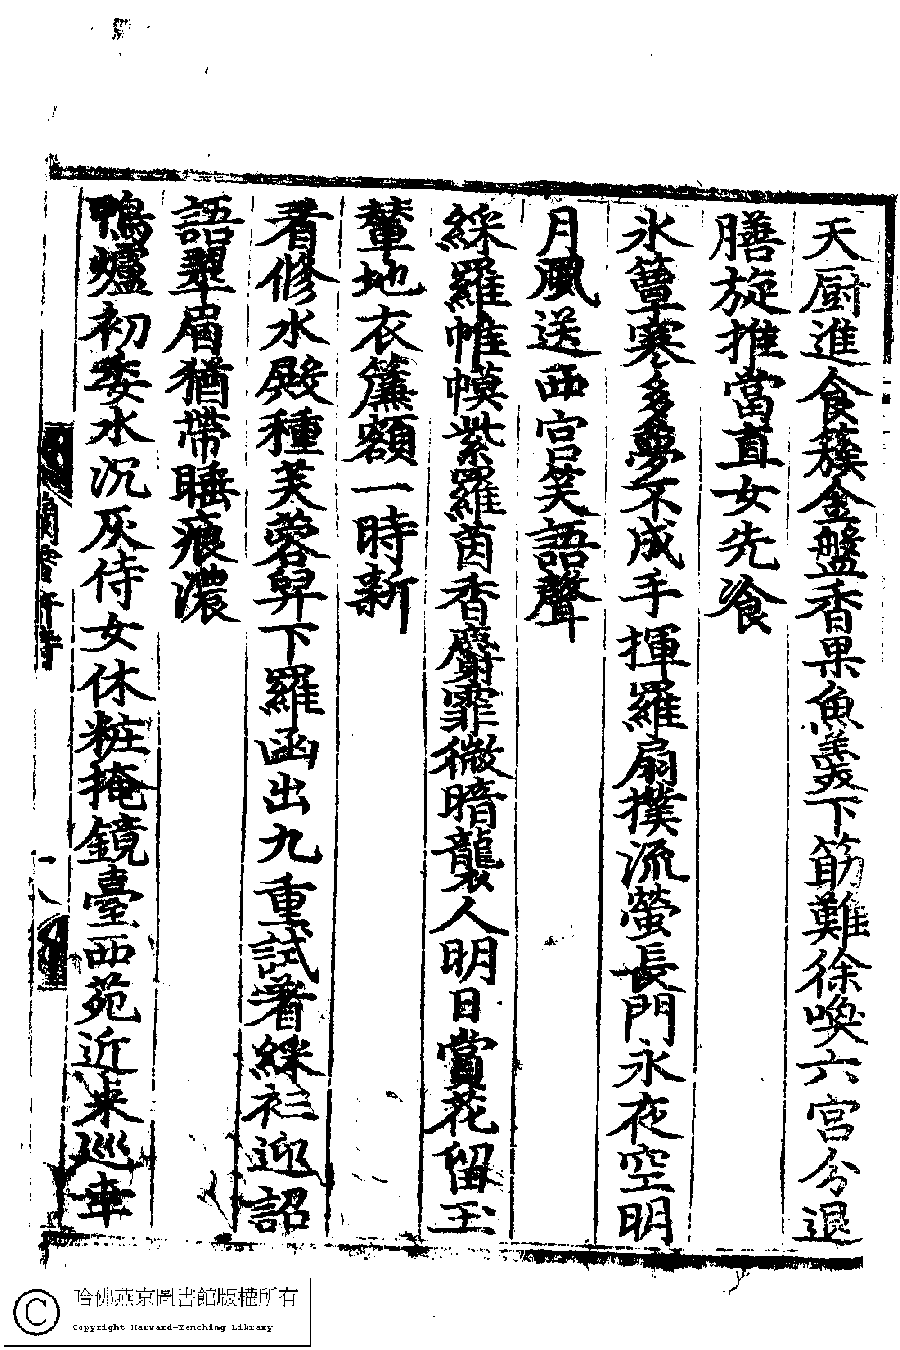 天厨進食簇金盤香果魚羹下筯難徐喚六宮分退
膳旋推當直女先飡
氷簟寒多夢不成手揮羅扇撲流螢長門永夜空明
月風送西宮笑語聲
綵羅帷幙紫羅茵香麝霏微暗襲人明日賞花留玉
輦地衣簾額一時新
看修水殿種芙蓉舁下羅函出九重試著綵衫迎詔
語翠眉猶帶睡痕濃
鴨爐初委水沉灰侍女休粧掩鏡臺西苑近来巡幸
蘭雪軒詩
十八
哈佛燕京圖書館版權所有
Copyright Harvard-Yenching Library